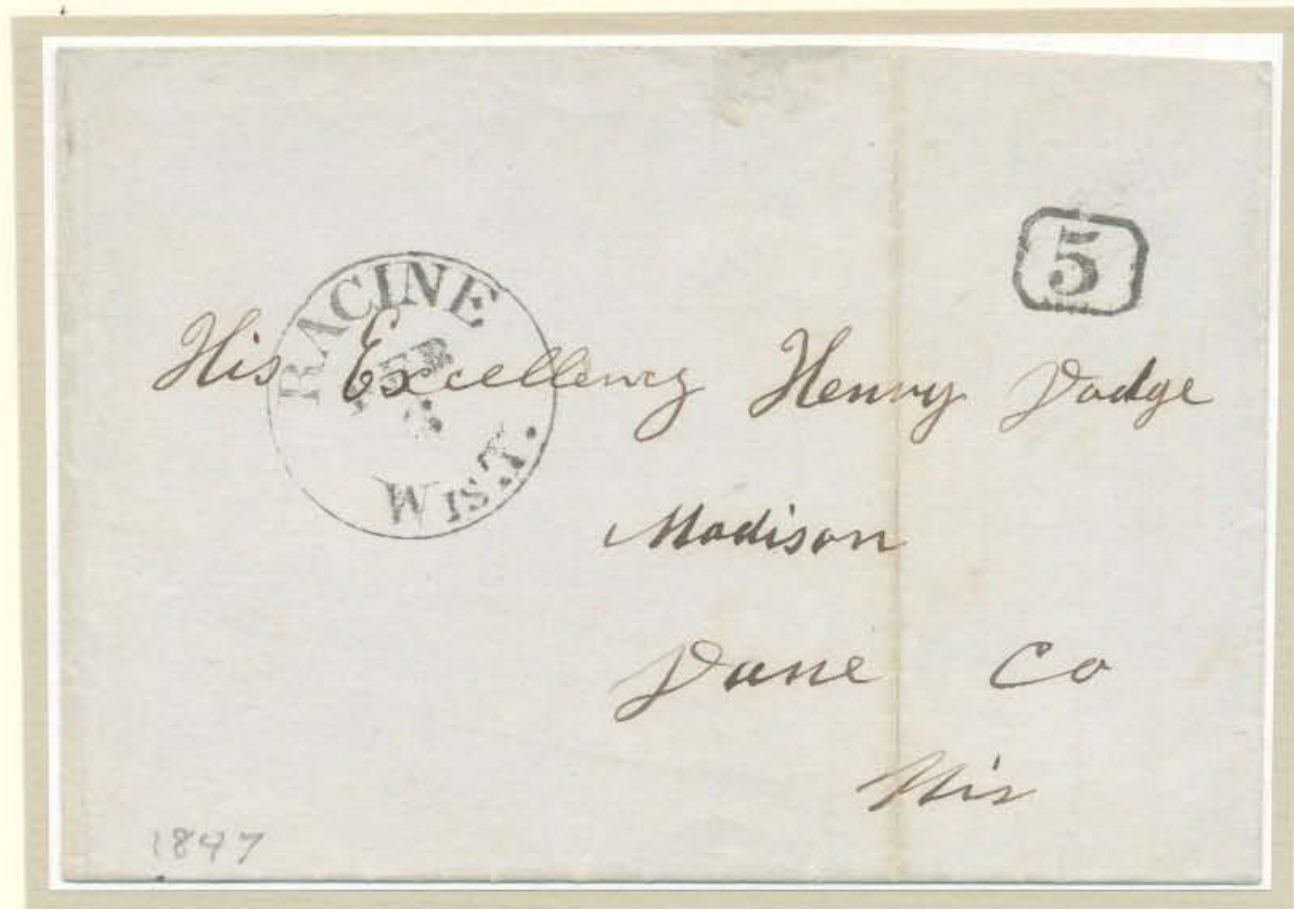 RACINE
FEB
WIS.T.
5
His Excellency Henry Dodge
Madison
Dane Co
Wis
1847